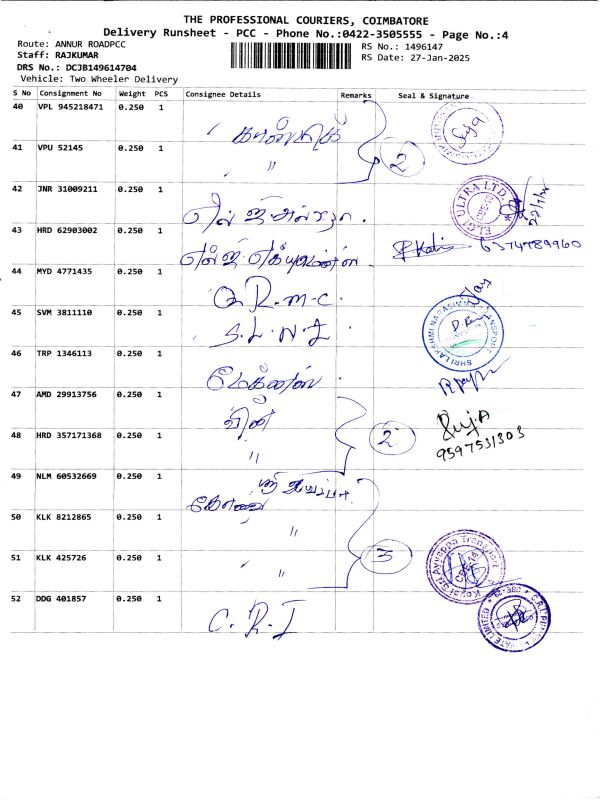 THE PROFESSIONAL COURIERS, COIMBATORE
Delivery Runsheet - PCC - Phone No.:0422-3505555 - Page No.:4
Route: ANNUR ROADPCC
Staff: RAJKUMAR
DRS No.: DCJB149614704
Vehicle: Two Wheeler Delivery
RS No.: 1496147
RS Date: 27-Jan-2025
S No Consignment No Weight PCS Consignee Details Remarks Seal & Signature
40 VPL 945218471 0.250 1
41 VPU 52145 0.250 1 " 2
42 JNR 31009211 0.250 1
ELGI ULTRA LTD.
43 HRD 62903002 0.250 1
6374789960
44 MYD 4771435 0.250 1 Q.R.m.C.
45 SVM 3811110 0.250 1 S.L.N.T
SHRI LAKSHMI NARASIMMA TRANSPORT
46 TRP 1346113 0.250 1
47 AMD 29913756 0.250 1 வினி
48 HRD 357171368 0.250 1 " 2
9597531303
49 NLM 60532669 0.250 1 கோவை ஸ்ரீ ஐயப்பா
50 KLK 8212865 0.250 1 "
51 KLK 425726 0.250 1 " 3
Kovai Sri Ayyappa Transport
52 DDG 401857 0.250 1 C.R.I